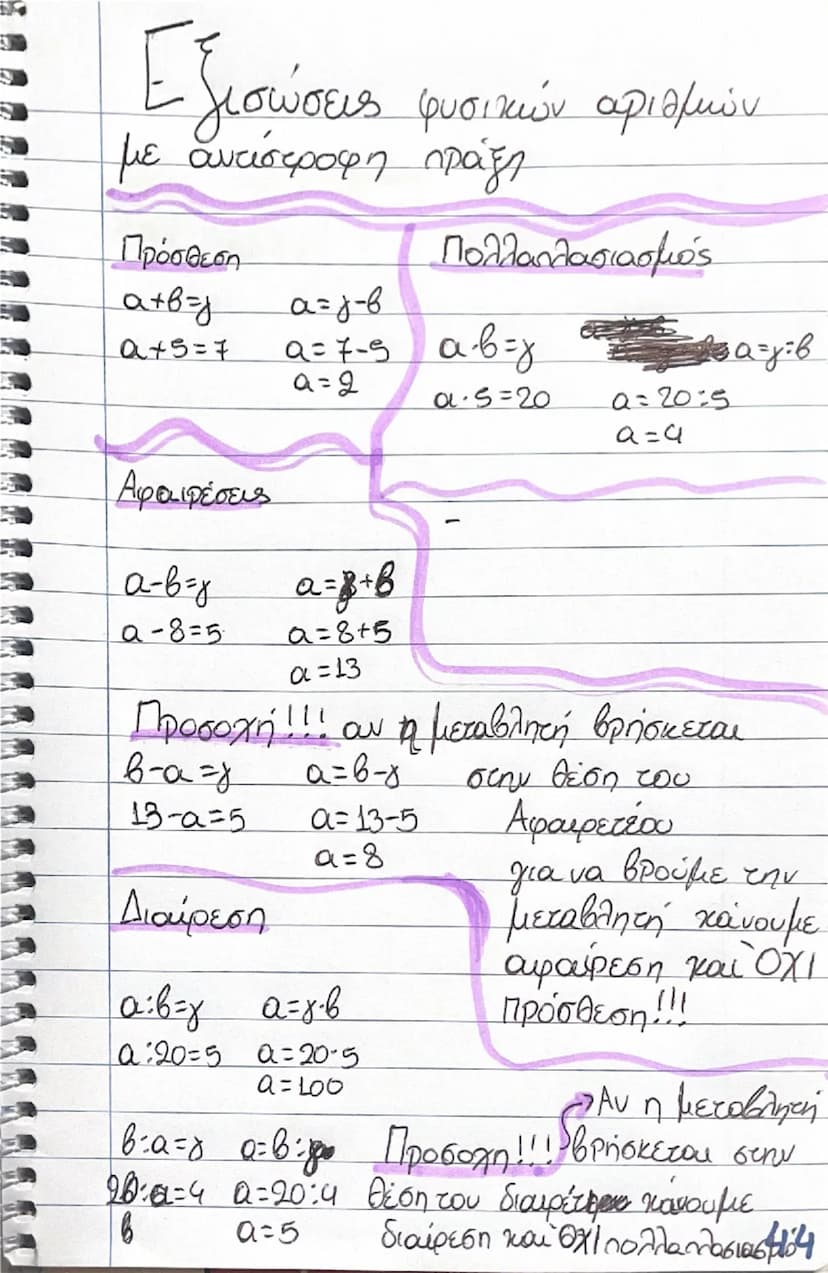 Εξισώσεις φυσικών αριθμών
με αντίστροφη πράξη
Πρόσθεση
α+β=γ α=γ-β
α+5=7 α=7-5
α=2
Πολλαπλασιασμός
α·β=γ α=γ:β
α·5=20 α=20:5
α=4
Αφαιρέσεις
-
α-β=γ α=γ+β
α-8=5 α=8+5
α=13
Προσοχή!!! αν η μεταβλητή βρήσκεται
στην θέση του
Αφαιρετέου
για να βρούμε την
μεταβλητή κάνουμε
αφαίρεση και ΌΧΙ
πρόσθεση!!!
β-α=γ α=β-γ
13-α=5 α=13-5
α=8
Διαίρεση
α:β=γ α=γ·β
α:20=5 α=20·5
α=100
β:α=γ α=β:γ
20:α=4 α=20:4
β α=5
Προσοχη!!! Αν η μεταβλητή
βρήσκεται στην
θέση του διαιρέτη κάνουμε
διαίρεση και ΌΧΙ πολλαπλασιασμό
44